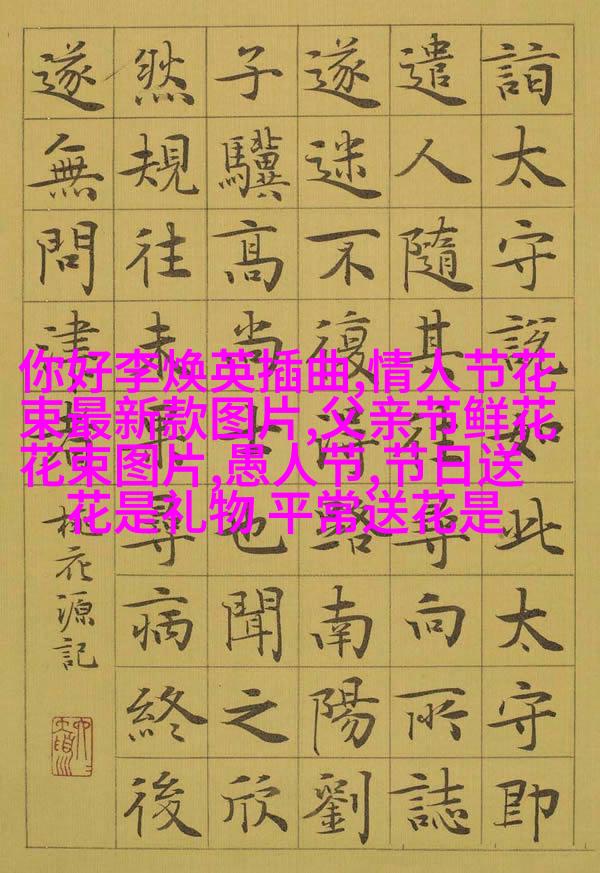 詣太守說如此太守即
遣人隨其往尋向所誌
遂迷不復得路南陽劉
子驥高尚士也聞之欣
然規往未果尋病終後
遂無問津者
桃花源記
你好李焕英插曲,情人节花
束最新款图片,父亲节鲜花
花束图片,愚人节,节日送
花是礼物,平常送花是